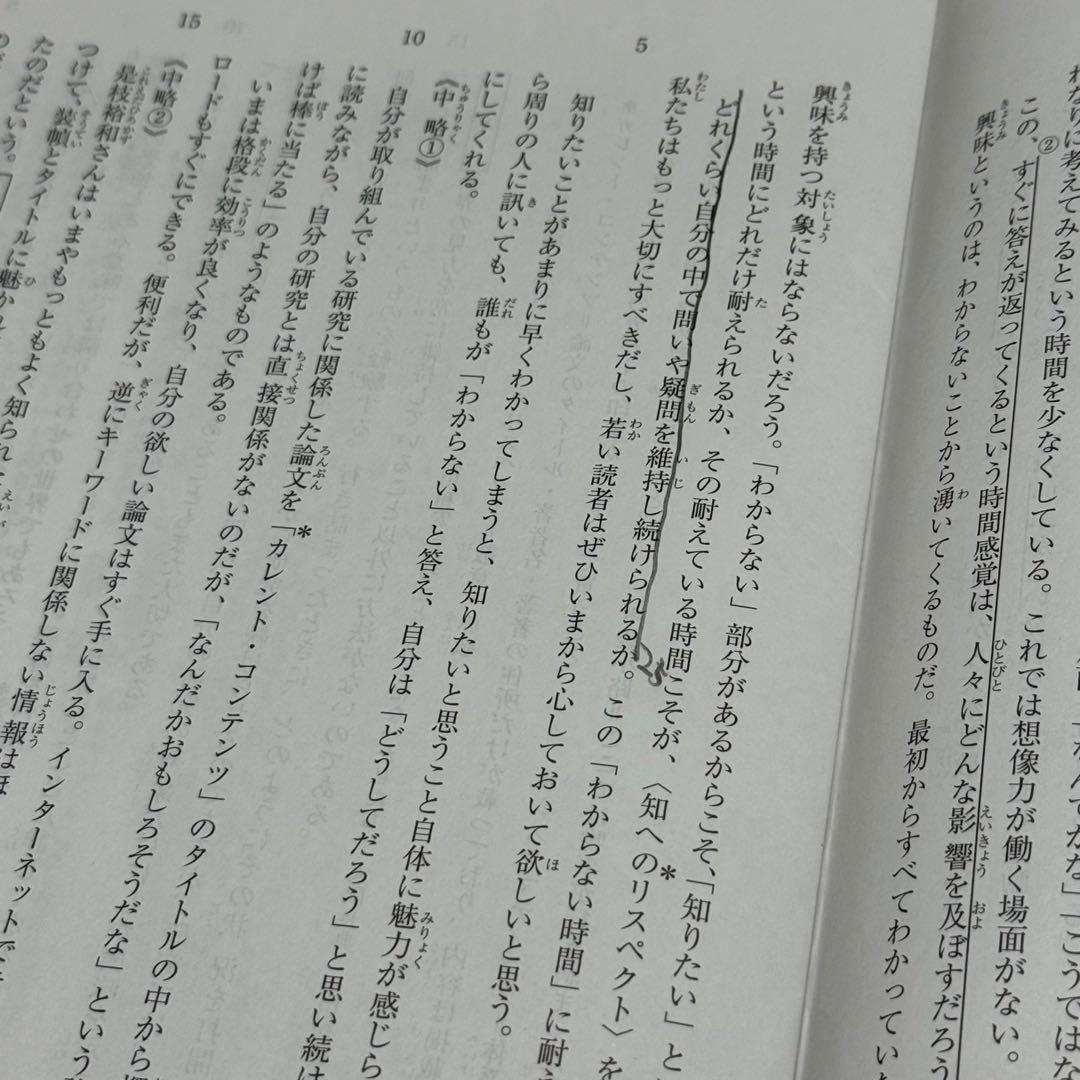 わなりに考えてみるという時間を少なくしている。これでは想像力が働く場面がない。
この、②すぐに答えが返ってくるという時間感覚は、人々にどんな影響を及ぼすだろう
興味というのは、わからないことから湧いてくるものだ。最初からすべてわかってい
興味を持つ対象にはならないだろう。「わからない」部分があるからこそ、「知りたい」と
という時間にどれだけ耐えられるか、その耐えている時間こそが、〈知へのリスペクト〉を
どれくらい自分の中で問いや疑問を維持し続けられるか。この「わからない時間」に耐
私たちはもっと大切にすべきだし、若い読者はぜひいまから心しておいて欲しいと思う。
知りたいことがあまりに早くわかってしまうと、知りたいと思うこと自体に魅力が感じら
ら周りの人に訊いても、誰もが「わからない」と答え、自分は「どうしてだろう」と思い続け
にしてくれる。
《中略①》
自分が取り組んでいる研究に関係した論文を「カレント・コンテンツ」のタイトルの中から
に読みながら、自分の研究とは直接関係がないのだが、「なんだかおもしろそうだな」という
けば棒に当たる」のようなものである。
いまは格段に効率が良くなり、自分の欲しい論文はすぐ手に入る。インターネットで
ロードもすぐにできる。便利だが、逆にキーワードに関係しない情報はほ
《中略②》
是枝裕和さんはいまやもっともよく知られ
つけて、装幀とタイトルに魅かれ
たのだという。
5
10
15